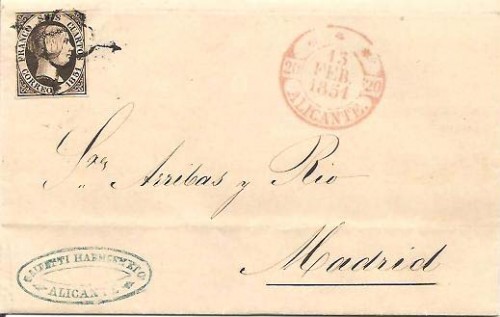 FRANCO SEIS CUARTOS
CORREOS 1851
13
FEB
1851
20 20
ALICANTE
Sres Arribas y Rio
Madrid
HARMSEN
ALICANTE